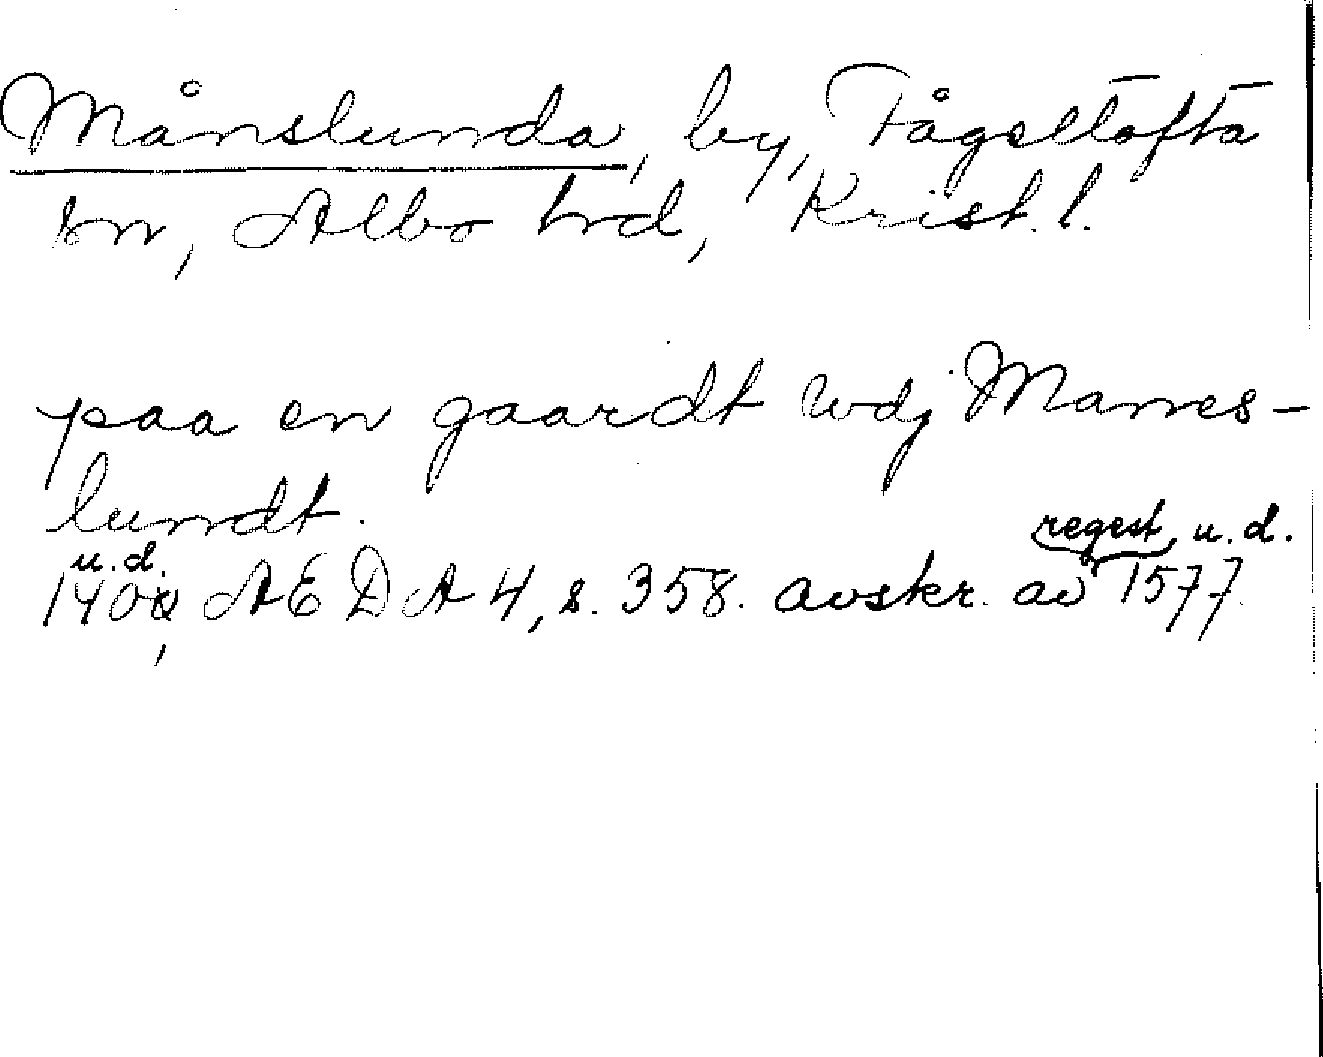 Månslunda, by, Fågeltofta
sn, Albo hrd, Krist. l.
paa en gaardt wdj Manes-
lundt.
regest, u. d.
u. d.
1400, AEDA 4, s. 358. avskr. av 1577.